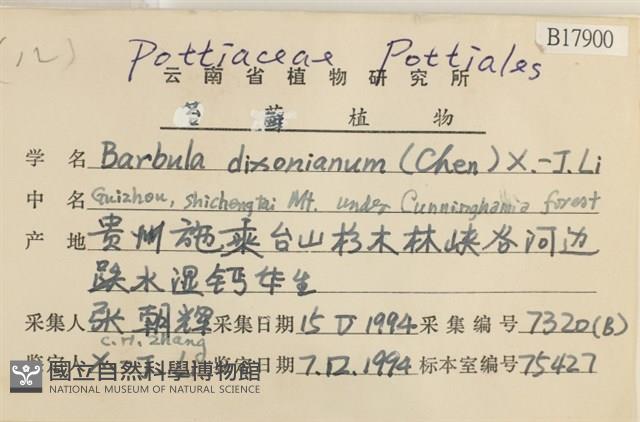 B17900
(12)
Pottiaceae Pottiales
云南省植物研究所
苔藓植物
学名 Barbula dixonianum (Chen) X.-J. Li
中名 Guizhou, Shichengtai Mt. under Cunninghamia forest
产地 贵州施秉台山杉木林峡谷河边
跌水湿钙华生
采集人 张朝辉 采集日期 15 V 1994 采集编号 7320(B)
C.H. Zhang
鉴定人 X.-J. Li 鉴定日期 7.12.1994 标本室编号 75427
國立自然科學博物館
NATIONAL MUSEUM OF NATURAL SCIENCE